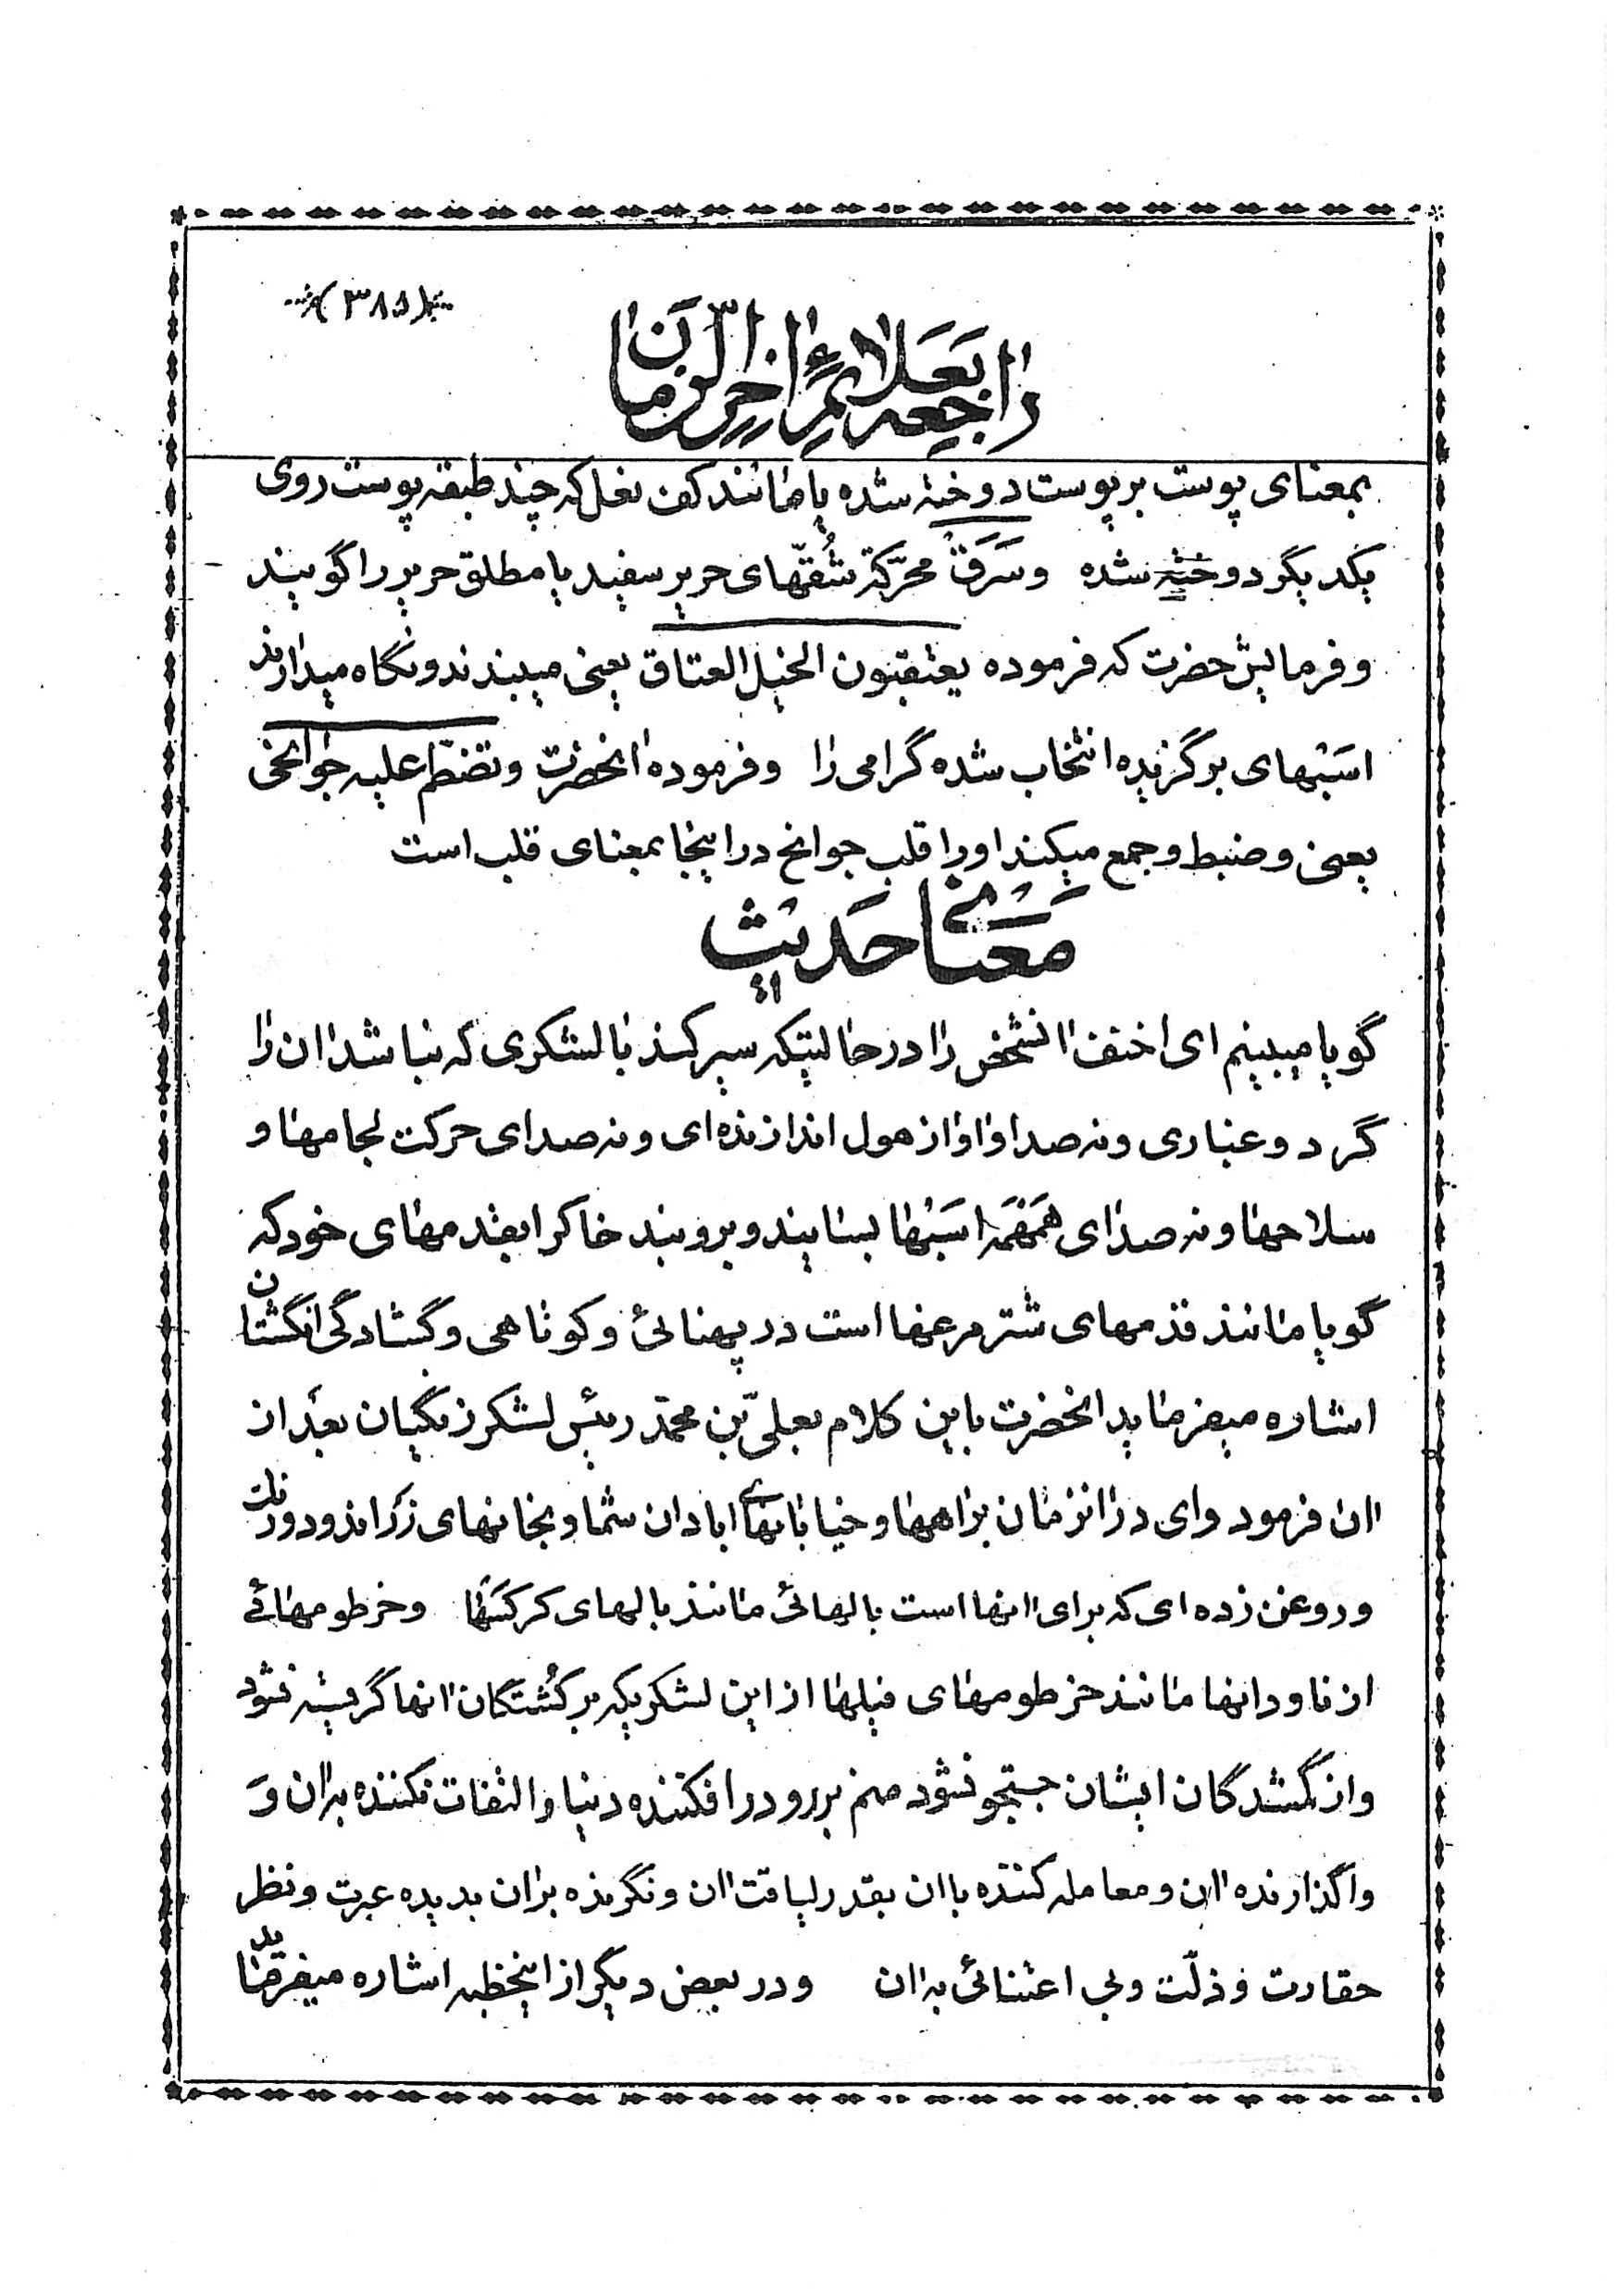 (۳۸۵)
راجعه بعلائم اخر الزمان
بمعنای پوست بر پوست دوخته شده یا مانند کف نعل که چند طبقه پوست روی
یکدیگر دوخته شده و سَرَق محرّکة شُقّهای حریر سفید یا مطلق حریر را گویند
و فرمایش حضرت که فرموده یعتقبون الخیل العتاق یعنی میبندند و نگاه میدارند
اسَبْهای برگزیده انتخاب شده گرامی را و فرموده انحضرت و تضطمّ علیه جوانحی
یعنی و ضبط و جمع میکند او را قلب جوانح در اینجا بمعنای قلب است
مَعَنْای حَدیْث
گویا میبینم ای احنف انشخص را در حالیتکه سیر کند با لشکری که نباشد ان را
گرد و غباری و نه صدا و اواز هول اندازنده‌ای و نه صدای حرکت لجامها و
سلاحها و نه صدای هَمهَمه اسَبْها بسایند و بروبند خاکرا بقدمهای خود که
گویا مانند قدمهای شترمرغها است در پهنائی و کوتاهی و گشادگی انگشتان
اشاره میفرماید انحضرت باین کلام بعلیّ بن محمّد رئیس لشکر زنگیان بعد از
ان فرمود وای در انزمان براهها و خیابانهای ابادان شما و بخانهای زراندود و رنگ
و روغن زده‌ای که برای انها است بالهائی مانند بالهای کرکسَها و خرطومهائی
از ناودانها مانند خرطومهای فیلها از این لشکریکه بر کُشتگان انها گریه نشود
و از گمشدگان ایشان جستجو نشود منم بر رو در افکننده دنیا و التفات نکننده بران وَ
واگذارنده ان و معامله کننده با ان بقدر لیاقت ان و نگرنده بران بدیده عبرت و نظر
حقارت و ذلّت و بی اعتنائی به ان و در بعض دیگر از اینخطبه اشاره میفرماید